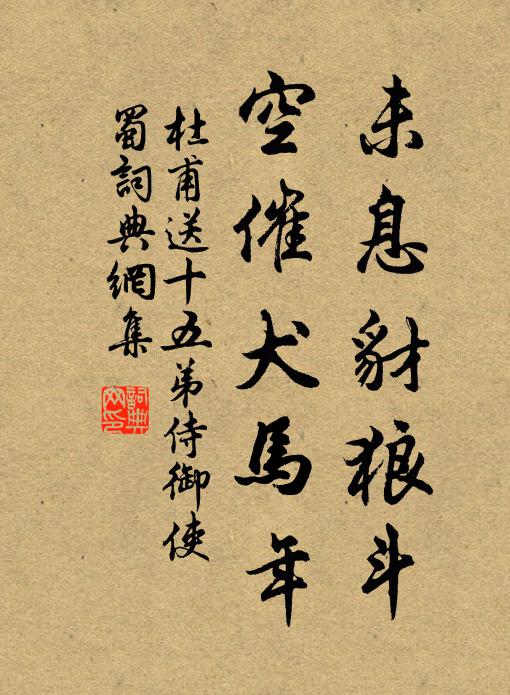 未息豺狼斗
空催犬馬年
杜甫送十五弟侍御使
蜀詞典網集
詞典網印